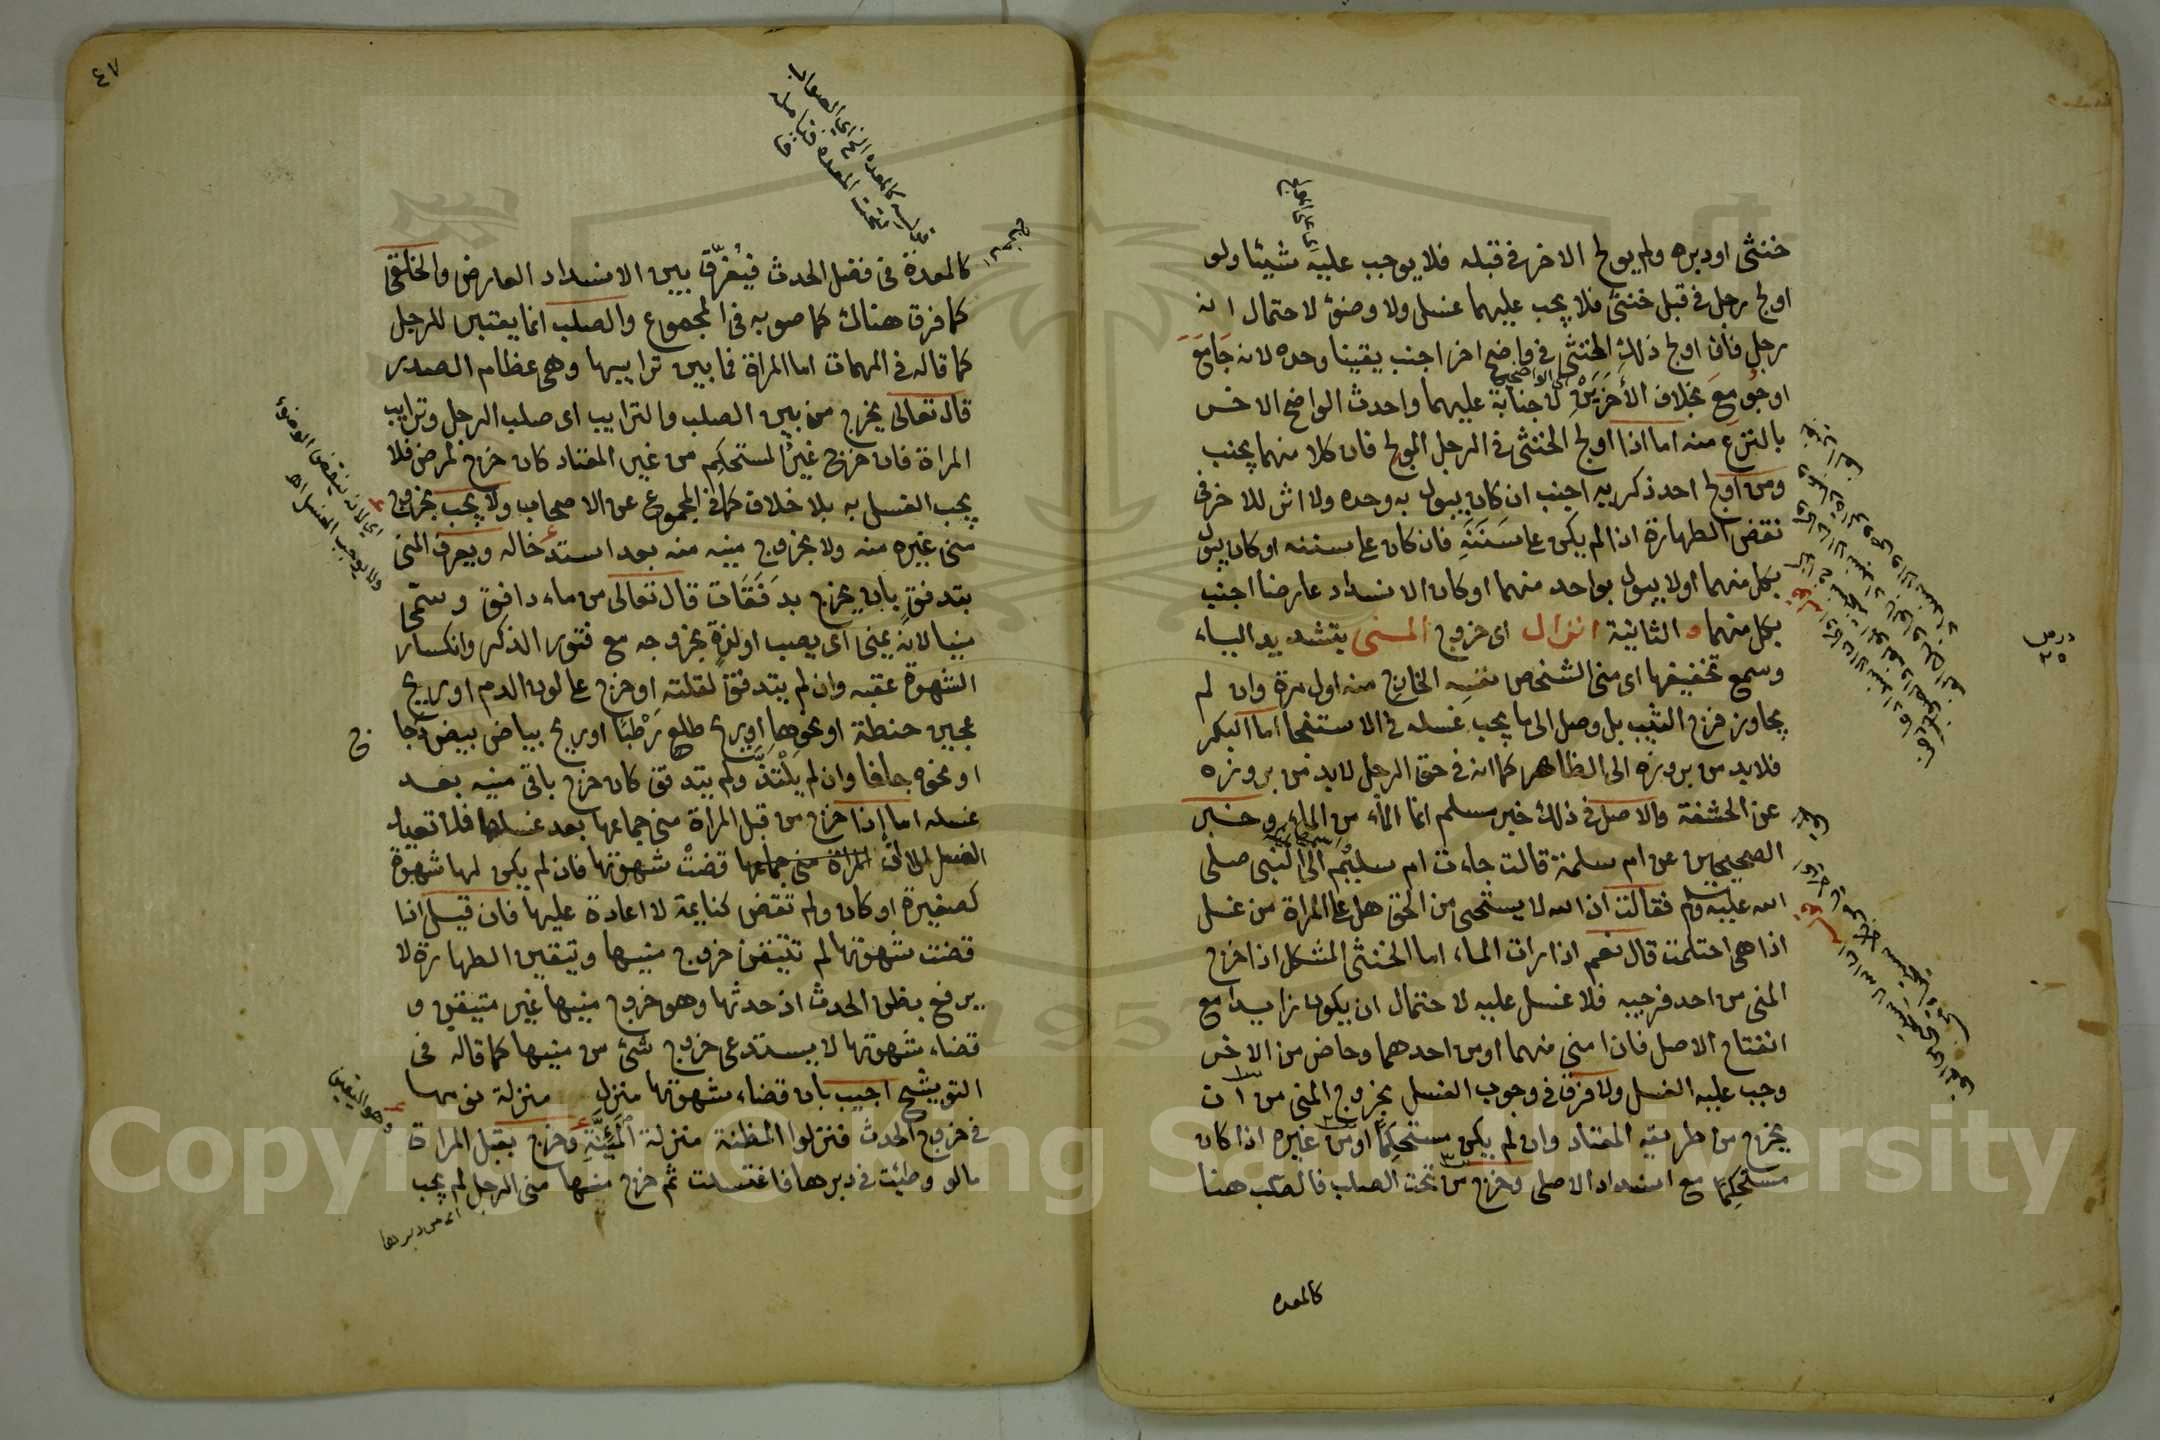 خنثى او دبره ولم يولج الاخر في قبله فلا يوجب عليه شيئا ولو
اولج رجل في قبل خنثى فلا يجب عليهما غسل ولا وضؤ لاحتمال انه
رجل فان اولج ذلك الخنثى في واضح اخر اجنب يقينا وحده لانه جَامَعَ
او جُومِعَ بخلاف الأخَرَيْنِ لا جنابة عليهما واحدث الواضح الاخر
بالنزع منه اما اذا اولج الخنثى في الرجل المولج فان كلا منهما يجنب
ومن اولج احد ذكريه اجنب ان كان يبول به وحده ولا اثر للاخر في
نقض الطهارة اذا لم يكن على سَنَنِهِ فان كان على سننه او كان يبول
بكل منهما اولا يبول بواحد منهما او كان الانسداد عارضا اجنب
بكل منهما و الثانية انزال اى خروج المنى بتشديد الياء
وسمع تخفيفها اى منى الشخص نفسه الخارج منه اول مرة وان لم
يجاوز فرج الثيب بل وصل الى ما يجب غسله في الاستنجا اما البكر
فلابد من بروزه الى الظاهر كما انه في حق الرجل لابد من بروزه
عن الحشفة والاصل في ذلك خبر مسلم انما الماء من الماء وخبر
الصحيحين عن ام سلمة قالت جاءت ام سليم الى النبى صلى
الله عليه وسلم فقالت ان الله لا يستحى من الحق هل على المراة من غسل
اذا هى احتلمت قال نعم اذا رات الماء اما الخنثى المشكل اذا خرج
المنى من احد فرجيه فلا غسل عليه لاحتمال ان يكون زايدا مع
انفتاح الاصل فان امنى منهما او من احدهما وحاض من الاخر
وجب عليه الغسل ولا فرق في وجوب الغسل بخروج المنى من ان
يخرج من طريقه المعتاد وان لم يكن مستحكِمًا او من غيره اذا كان
مستحكِمًا مع انسداد الاصلى وخرج من تحت الصلب فالصلب هنا
كالمعده
درس
٢٥
٤٧
كالمعدة في فصل الحدث فيُفرَّق بين الانسداد العارض والخلقى
كما فرق هناك كما صوبه في المجموع والصلب انما يعتبر للرجل
كما قاله في المهمات اما المراة فما بين ترايبها وهى عظام الصدر
قال تعالى يخرج من بين الصلب والترايب اى صلب الرجل وترايب
المراة فان خرج غيرُ المستحكِم من غير المعتاد كان خرج لمرض فلا
يجب الغسل به بلا خلاف كما في المجموع عن الاصحاب ولا يجب بخروج
منى غيره منه ولا بخروج منيه منه بعد استدخاله ويعرف المنى
بتدفقٍ بان يخرج بدَفَقَات قال تعالى من ماء دافق وسمّى
منيا لانه يمنى اى يصب او لذةٍ بخروجه مع فتور الذكر وانكسار
الشهوة عقبه وان لم يتدفق لقلته او خرج على لون الدم او ريح
عجين حنطة او نحوها او ريح طلع رَطْبًا او ريح بياض بيض دجا
ج
او نحوه جافا وان لم يلْتَذَّ ولم يتدفق كان خرج باقى منيه بعد
غسله اما اذا خرج من قبل المراة منى جماعها بعد غسلها فلا تعيد
الغسل الا ان المراة منى جماعها قضتْ شهوتها فان لم يكن لها شهوة
كصغيرة او كان ولم تقض كنايمة لا اعادة عليها فان قيل اذا
قضت شهوتها لم تتيقن خروج منيها ويتقين الطهارة لا
يرفع بظن الحدث اذ حدثها وهو خروج منيها غير متيقن و
قضاء شهوتها لا يستدعى خروج شئ من منيها كما قاله في
التوشيح اجيب بان قضاء شهوتها منزل منزلة نومها
في خروج الحدث فنزلوا المظنة منزلة المَئِنَّةِ وخرج بقبل المراة
مالو وطئت في دبرها فاغتسلت ثم خرج منها منى الرجل لم يجب
اى لانه ينقض الوضوء
ولا يوجب الغسل اھ
وهو اليقين
اى من دبرها